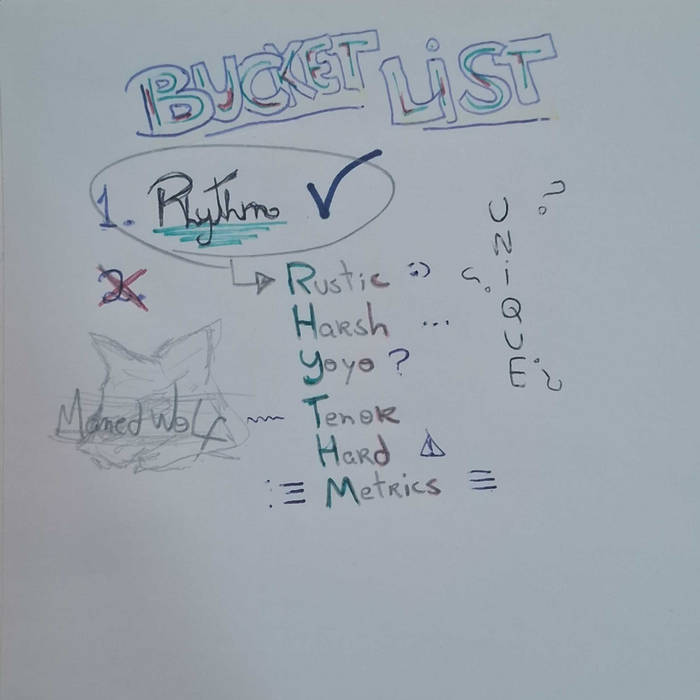 BUCKET LiST
1. Rhythm ✓
2.
Rustic :)
Harsh ...
Yoyo ?
Maned Wolf
Tenor
Hard ⚠
Metrics
UNiQUE